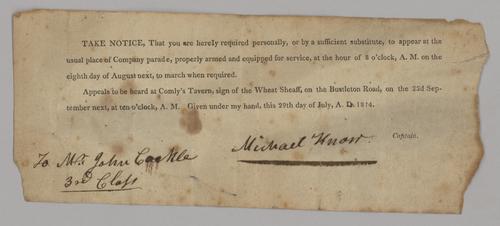 TAKE NOTICE, That you are hereby required personally, or by a sufficient substitute, to appear at the
usual place of Company parade, properly armed and equipped for service, at the hour of 8 o'clock, A. M. on the
eighth day of August next, to march when required.
Appeals to be heard at Comly's Tavern, sign of the Wheat Sheaff, on the Bustleton Road, on the 22d Sep-
tember next, at ten o'clock, A. M. Given under my hand, this 29th day of July, A. D. 1814.
Michael Knorr. Captain.
To Mr. John
3rd Class